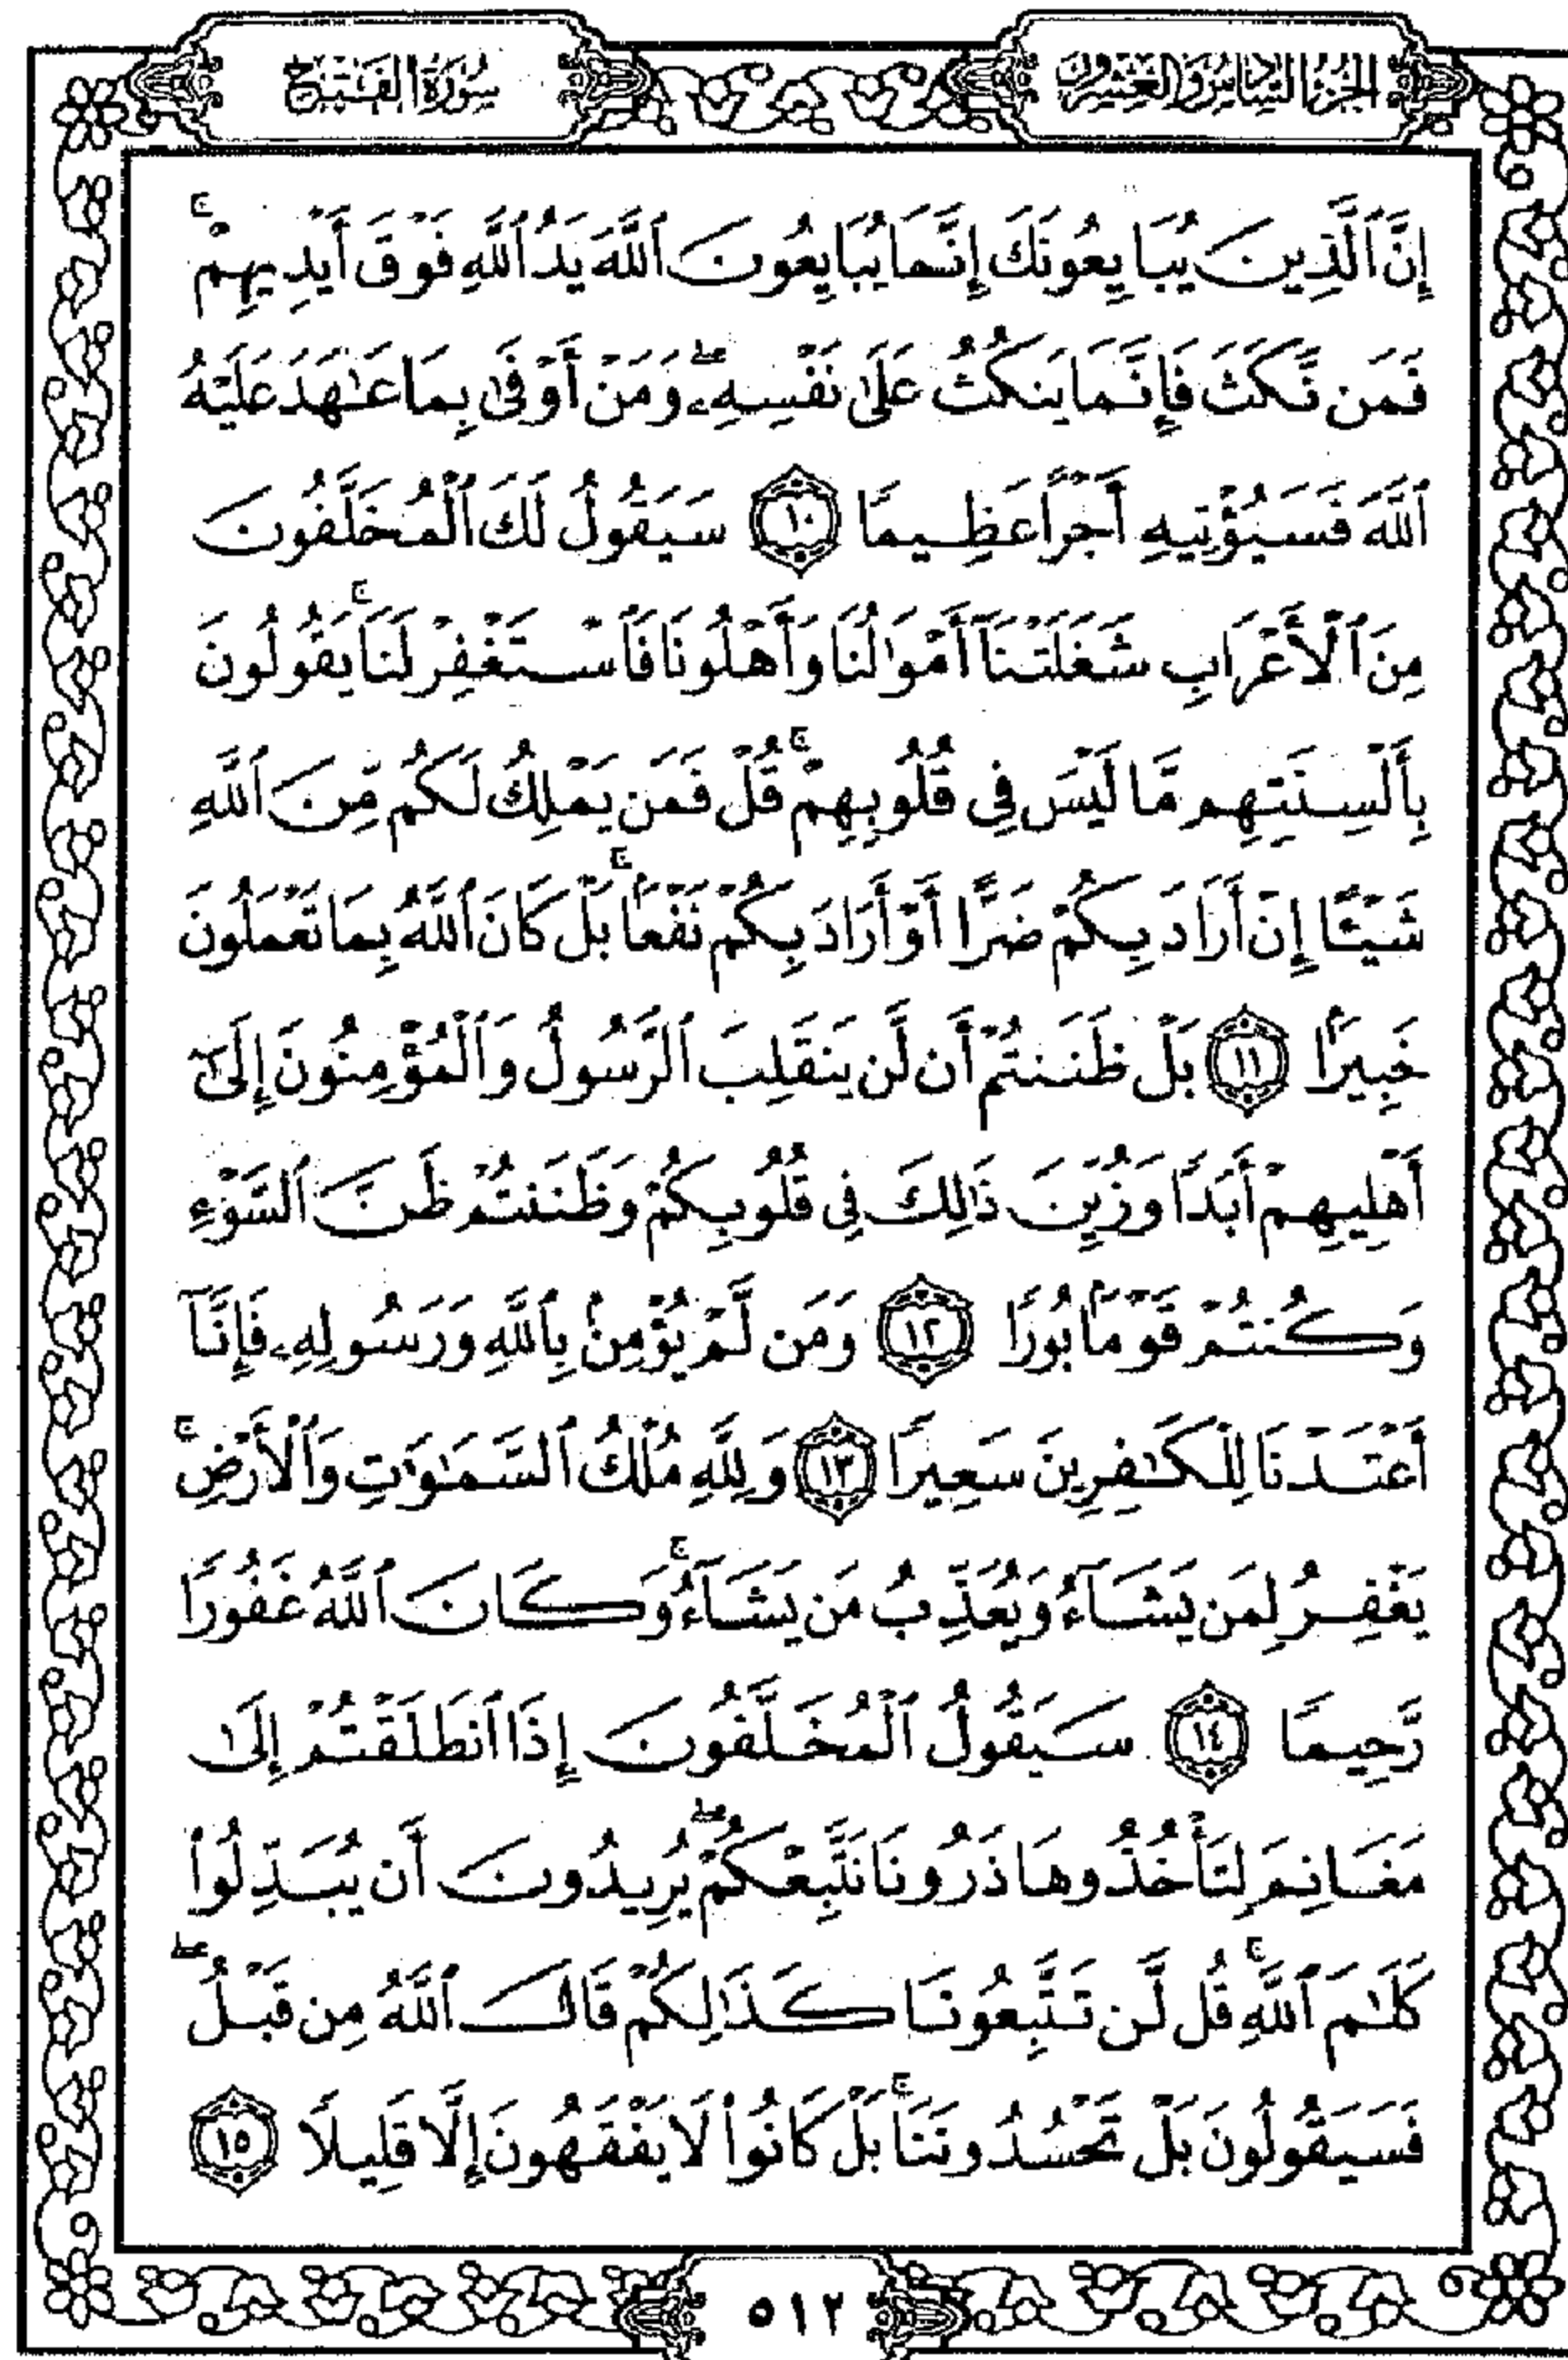 الجزء السادس والعشرون
سورة الفتح
إِنَّ ٱلَّذِينَ يُبَايِعُونَكَ إِنَّمَا يُبَايِعُونَ ٱللَّهَ يَدُ ٱللَّهِ فَوْقَ أَيْدِيهِمْۚ
فَمَن نَّكَثَ فَإِنَّمَا يَنكُثُ عَلَىٰ نَفْسِهِۦۖ وَمَنْ أَوْفَىٰ بِمَا عَـٰهَدَ عَلَيْهُ
ٱللَّهَ فَسَيُؤْتِيهِ أَجْرًا عَظِيمًا ١٠ سَيَقُولُ لَكَ ٱلْمُخَلَّفُونَ
مِنَ ٱلْأَعْرَابِ شَغَلَتْنَآ أَمْوَٰلُنَا وَأَهْلُونَا فَٱسْتَغْفِرْ لَنَاۚ يَقُولُونَ
بِأَلْسِنَتِهِم مَّا لَيْسَ فِى قُلُوبِهِمْۚ قُلْ فَمَن يَمْلِكُ لَكُم مِّنَ ٱللَّهِ
شَيْـًٔا إِنْ أَرَادَ بِكُمْ ضَرًّا أَوْ أَرَادَ بِكُمْ نَفْعًۢاۚ بَلْ كَانَ ٱللَّهُ بِمَا تَعْمَلُونَ
خَبِيرًۢا ١١ بَلْ ظَنَنتُمْ أَن لَّن يَنقَلِبَ ٱلرَّسُولُ وَٱلْمُؤْمِنُونَ إِلَىٰٓ
أَهْلِيهِمْ أَبَدًا وَزُيِّنَ ذَٰلِكَ فِى قُلُوبِكُمْ وَظَنَنتُمْ ظَنَّ ٱلسَّوْءِ
وَكُنتُمْ قَوْمًۢا بُورًا ١٢ وَمَن لَّمْ يُؤْمِنۢ بِٱللَّهِ وَرَسُولِهِۦ فَإِنَّآ
أَعْتَدْنَا لِلْكَـٰفِرِينَ سَعِيرًا ١٣ وَلِلَّهِ مُلْكُ ٱلسَّمَـٰوَٰتِ وَٱلْأَرْضِۚ
يَغْفِرُ لِمَن يَشَآءُ وَيُعَذِّبُ مَن يَشَآءُۚ وَكَانَ ٱللَّهُ غَفُورًا
رَّحِيمًا ١٤ سَيَقُولُ ٱلْمُخَلَّفُونَ إِذَا ٱنطَلَقْتُمْ إِلَىٰ
مَغَانِمَ لِتَأْخُذُوهَا ذَرُونَا نَتَّبِعْكُمْۖ يُرِيدُونَ أَن يُبَدِّلُوا۟
كَلَـٰمَ ٱللَّهِۚ قُل لَّن تَتَّبِعُونَا كَذَٰلِكُمْ قَالَ ٱللَّهُ مِن قَبْلُۖ
فَسَيَقُولُونَ بَلْ تَحْسُدُونَنَاۚ بَلْ كَانُوا۟ لَا يَفْقَهُونَ إِلَّا قَلِيلًا ١٥
٥١٢